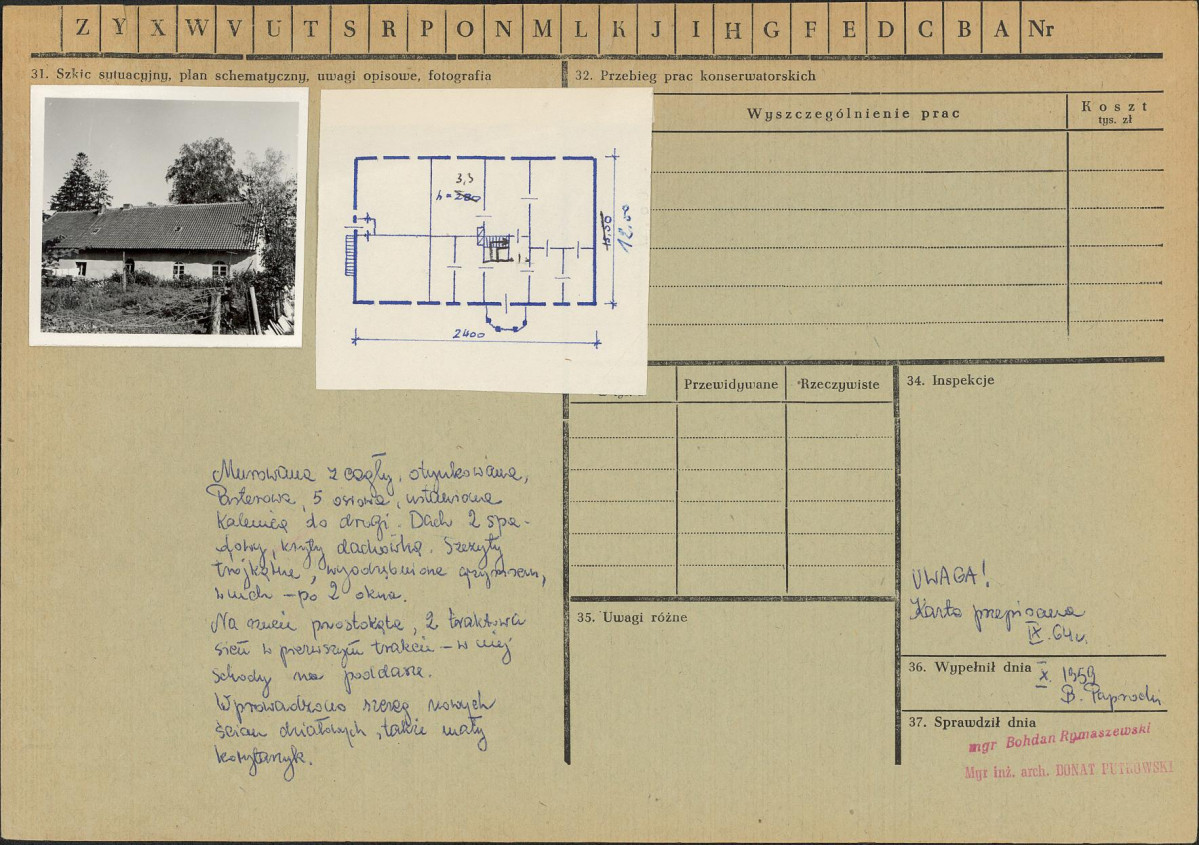 Z Y X W V U T S R P O N M L K J I H G F E D C B A Nr
31. Szkic sytuacyjny, plan schematyczny, uwagi opisowe, fotografia
3,3
h = 280
15.50
12.00
2400
Murowana z cegły, otynkowana,
Parterowa, 5 osiowa, ustawiona
Kalenicą do drogi. Dach 2 spa-
dowy, kryty dachówką. Szczyty
trójkątne, wyodrębnione gzymsem,
w nich – po 2 okna.
Na rzucie prostokąta, 2 traktowa
sień w pierwszym trakcie – w niej
schody na poddasze.
Wprowadzono szereg nowych
ścian działowych, także mały
korytarzyk.
32. Przebieg prac konserwatorskich
Wyszczególnienie prac
Koszt
tys. zł
Przewidywane
Rzeczywiste
34. Inspekcje
UWAGA!
Karta przepisana
IX. 64 r.
35. Uwagi różne
36. Wypełnił dnia X. 1959
B. Paprocki
37. Sprawdził dnia
mgr Bohdan Rymaszewski
Mgr inż. arch. DONAT PUTKOWSKI